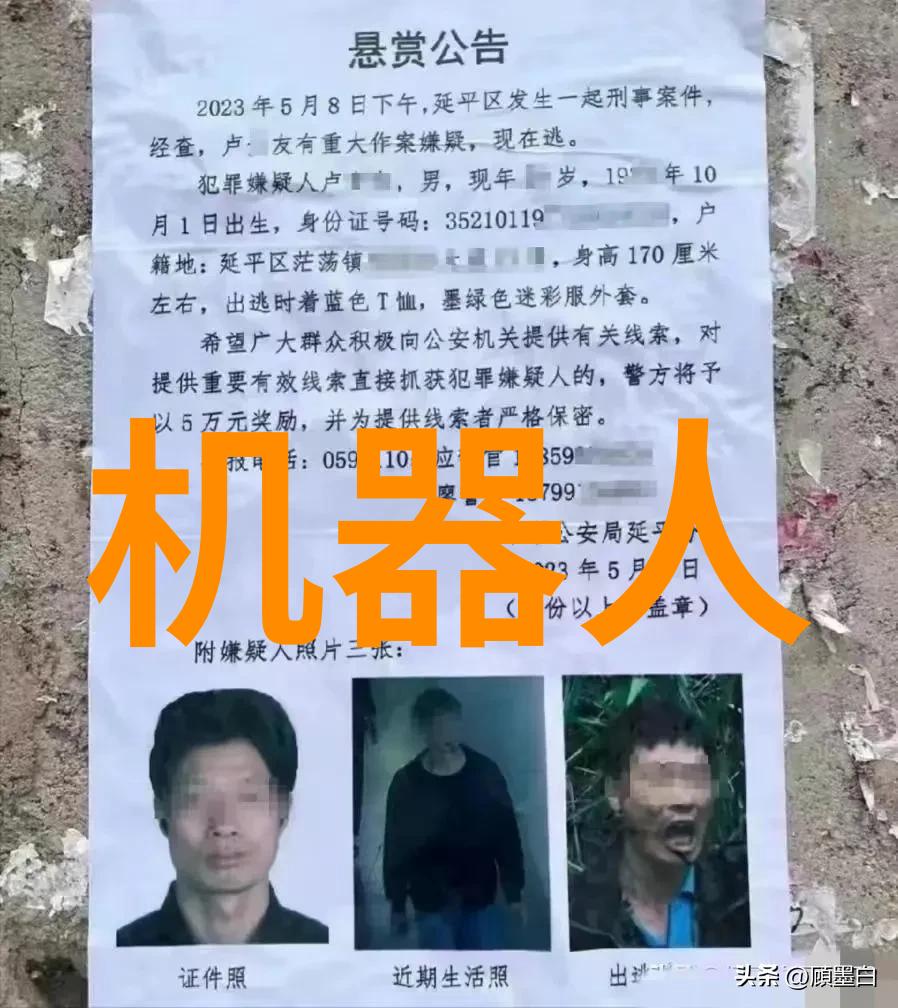 悬赏公告
2023年5月8日下午，延平区发生一起刑事案件，
经查，卢 友有重大作案嫌疑，现在逃。
犯罪嫌疑人卢 ，男，现年 岁，19 年10
月1日出生，身份证号码：35210119 ，户
籍地：延平区茫荡镇 ，身高170厘米
左右，出逃时着蓝色T恤，墨绿色迷彩服外套。
希望广大群众积极向公安机关提供有关线索，对
提供重要有效线索直接抓获犯罪嫌疑人的，警方将予
以5万元奖励，并为提供线索者严格保密。
报电话：059 110 应 官 1 859
廖 799
公安局延平
23年5月 日
（ 份以上 盖章）
机器人
附嫌疑人照片三张：
证件照 近期生活照 出逃
头条 @顾墨白